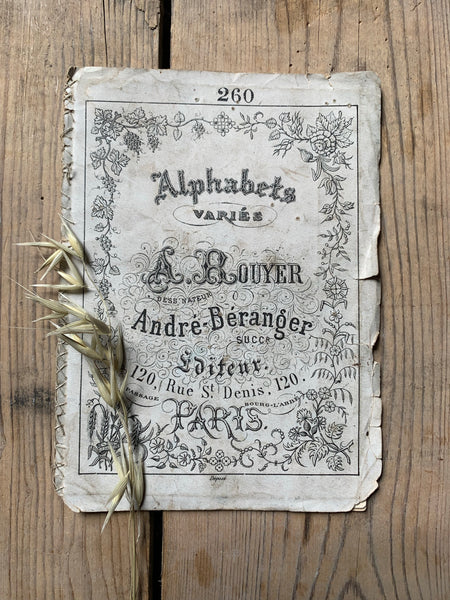 260
Alphabets
VARIÉS
A. ROUYER
DESSINATEUR
André-Béranger
SUCCR
Éditeur.
120, Rue St Denis, 120.
PASSAGE BOURG-L'ABBÉ
PARIS.
Déposé